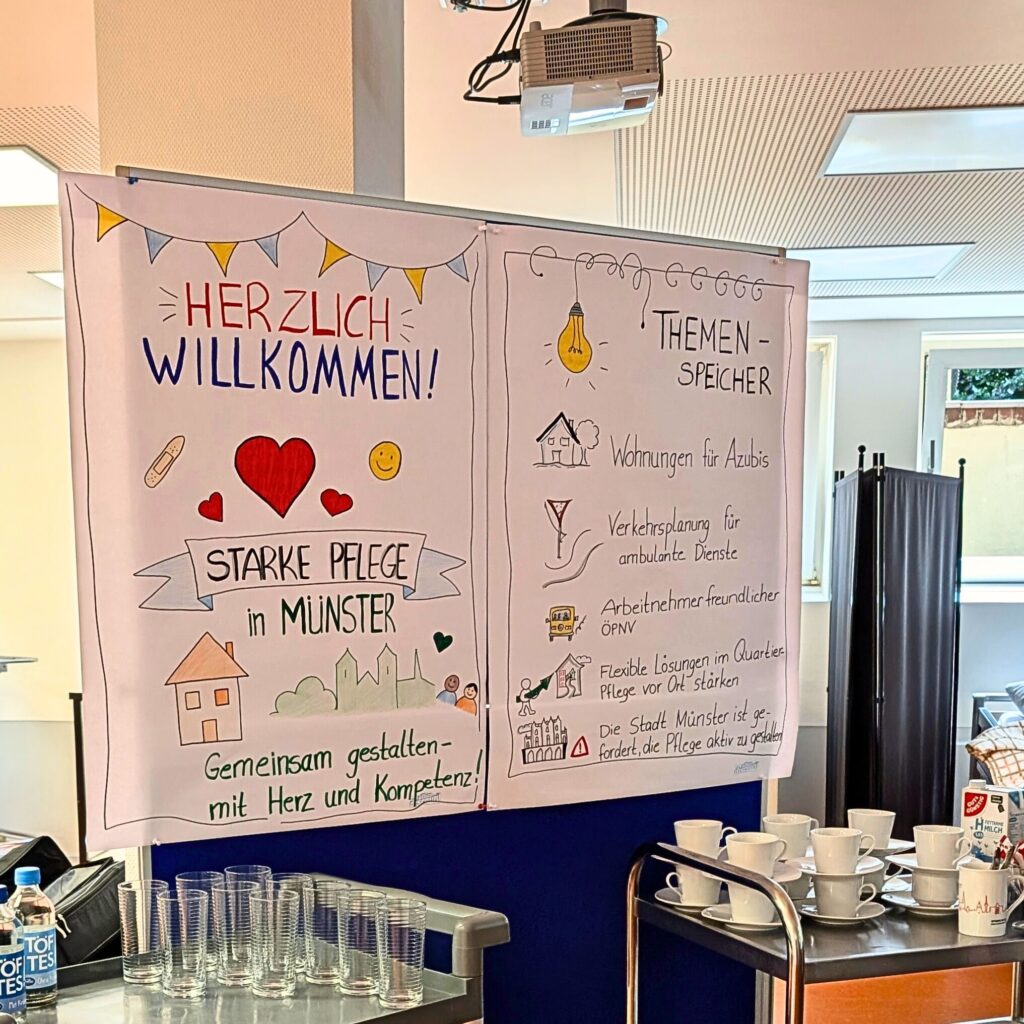 HERZLICH
WILLKOMMEN!
STARKE PFLEGE
in MÜNSTER
Gemeinsam gestalten-
mit Herz und Kompetenz!
THEMEN-
SPEICHER
Wohnungen für Azubis
Verkehrsplanung für
ambulante Dienste
Arbeitnehmerfreundlicher
ÖPNV
Flexible Lösungen im Quartier-
Pflege vor Ort stärken
Die Stadt Münster ist ge-
fordert, die Pflege aktiv zu gestalten
TÖF
TES
TÖF
TES
GUT&
GÜNSTIG
FETTARME
H
MILCH